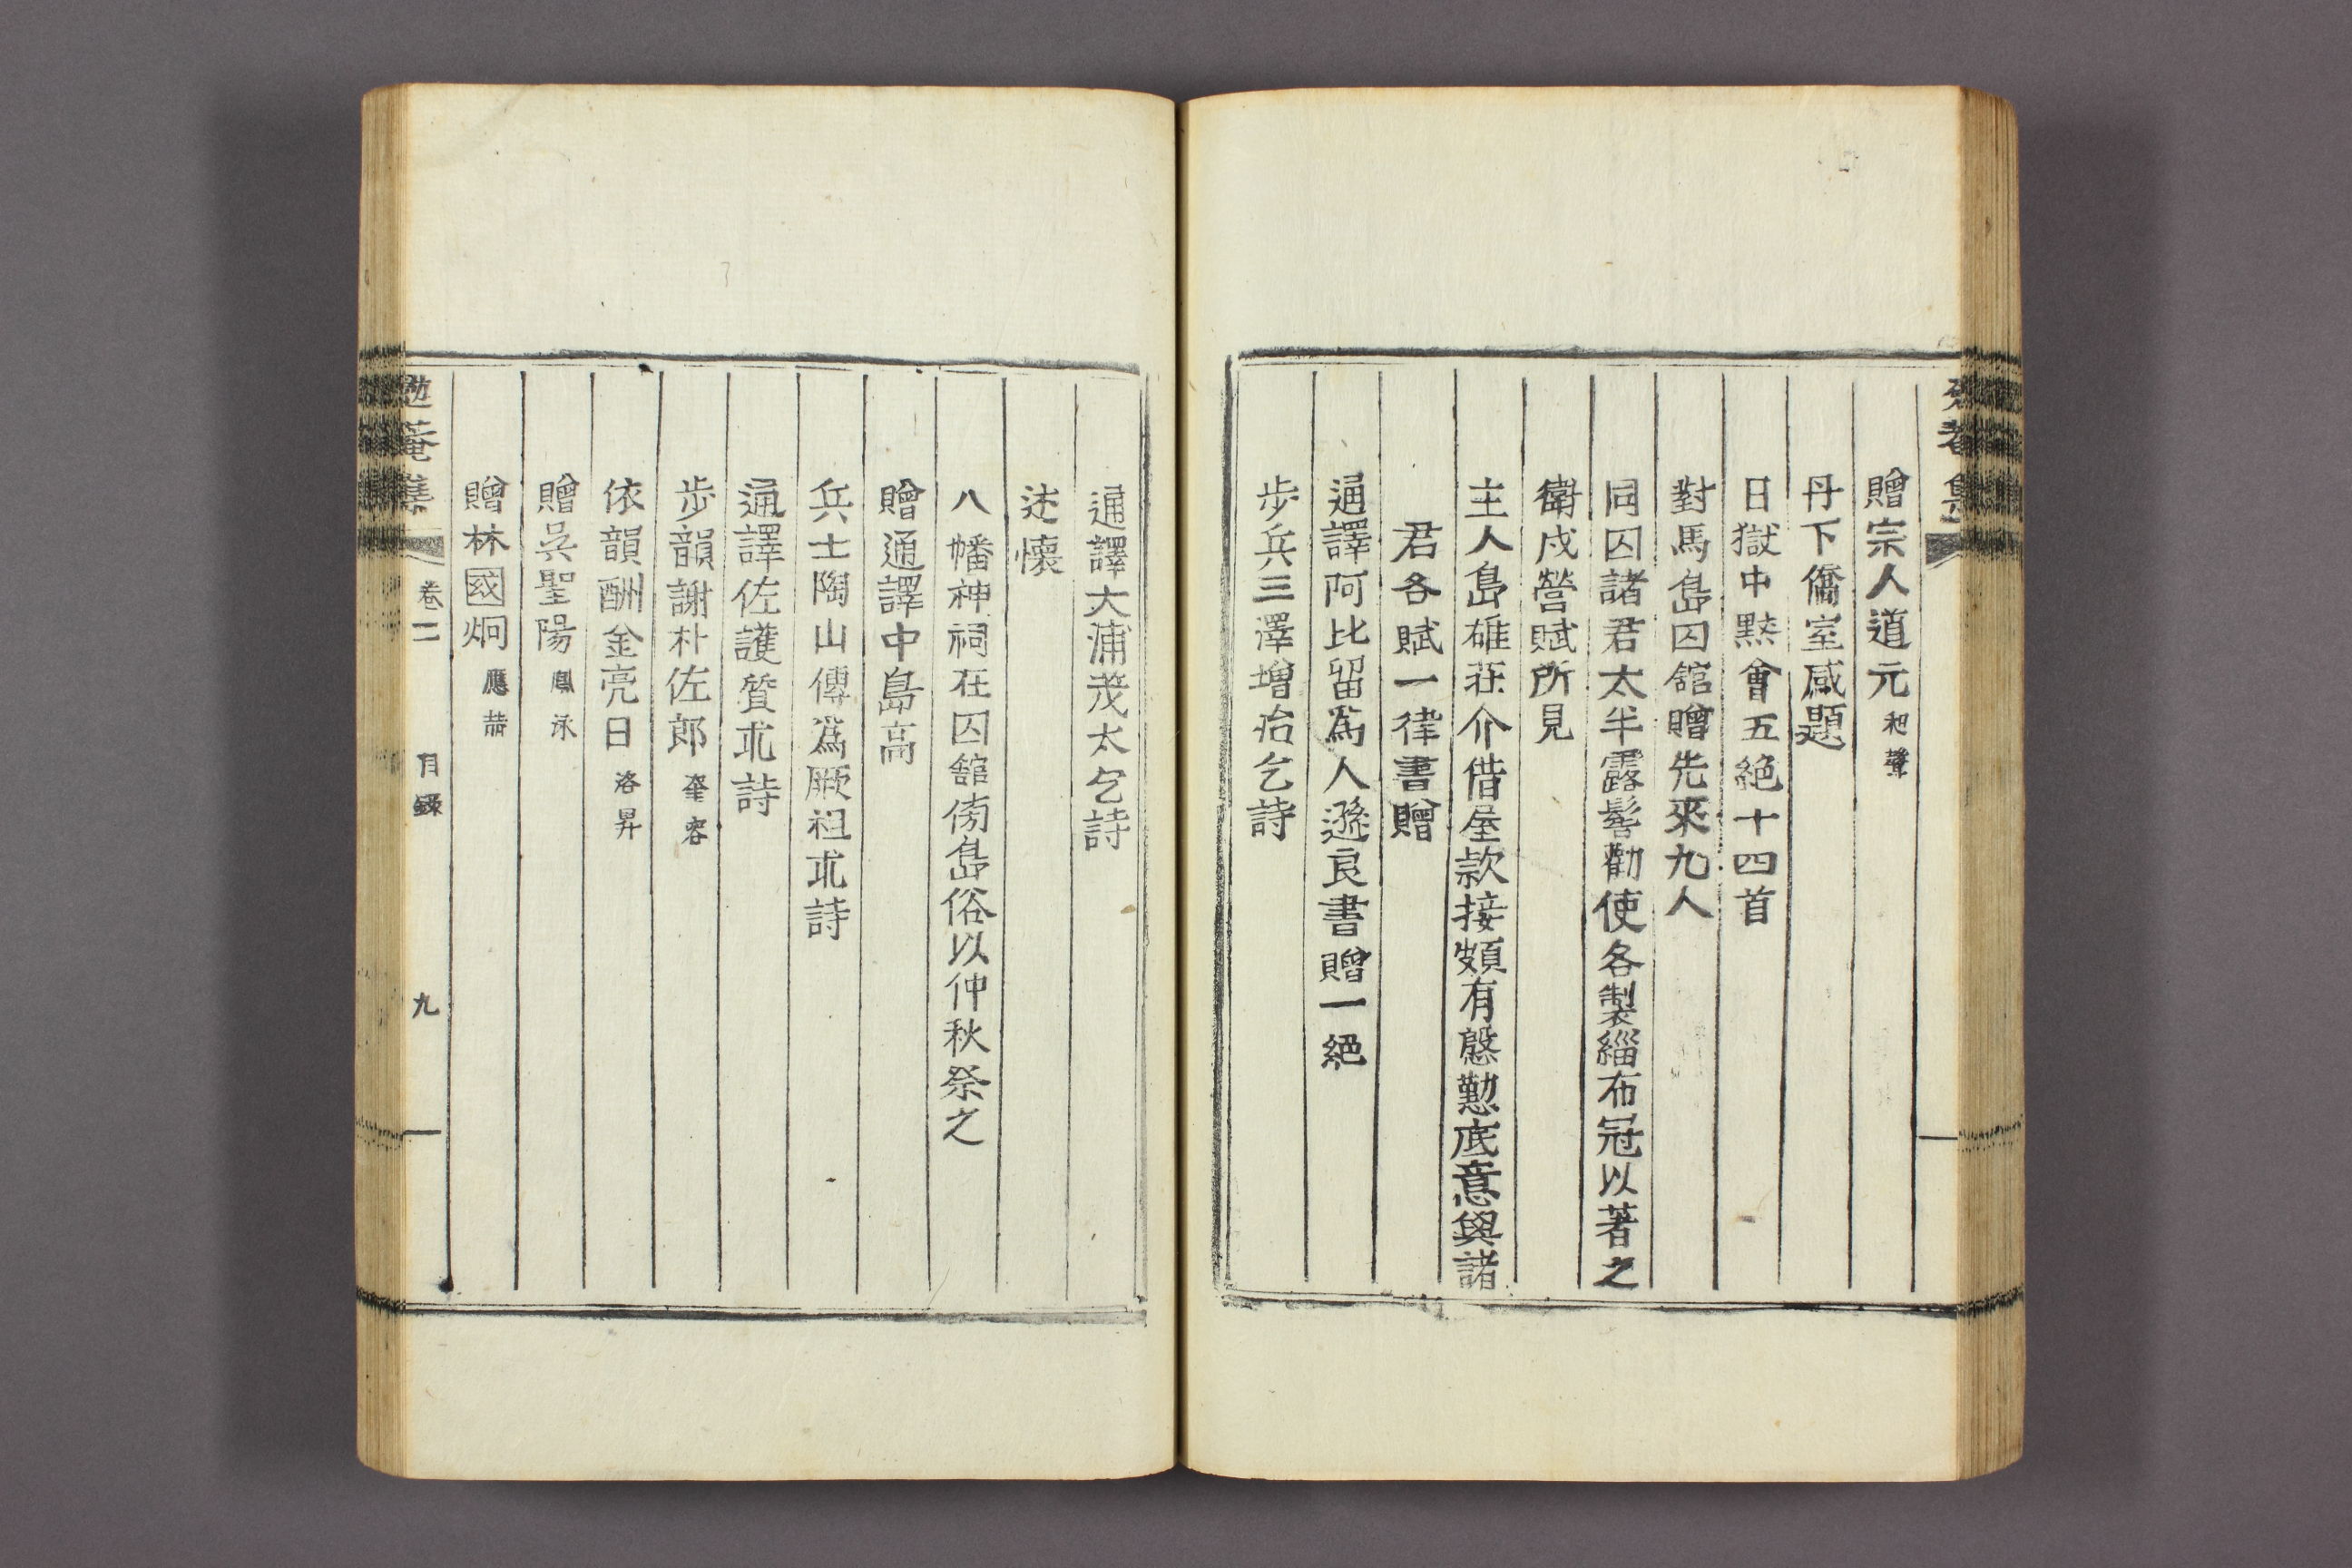 贈宗人道元 和聲
丹下僑室感題
日獄中點會五絕十四首
對馬島囚舘贈先來九人
同囚諸君太半露髻勸使各製緇布冠以著之
衛戍營賦所見
主人島雄莊介借屋款接頗有慇懃底意與諸
君各賦一律書贈
通譯阿比留爲人遜良書贈一絕
步兵三澤增治乞詩
通譯大浦茂太乞詩
述懷
八幡神祠在囚舘傍島俗以仲秋祭之
贈通譯中島高
兵士陶山傳爲厥祖求詩
通譯佐護質求詩
步韻謝朴佐郞 奎容
依韻酬金亮日 洛昇
贈吳聖陽 鳳泳
贈林國炯 應喆
勉菴集 卷二 目錄 九